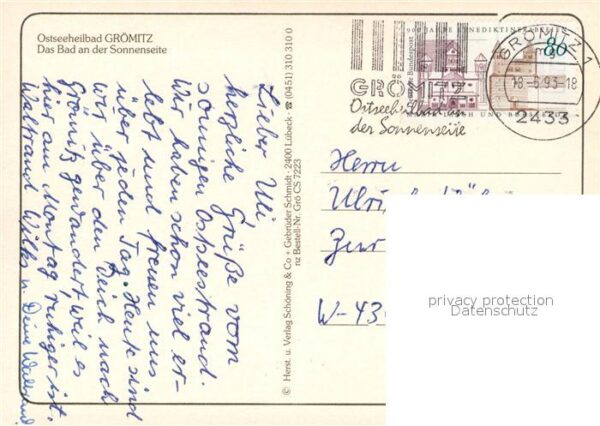 Ostseeheilbad GRÖMITZ
Das Bad an der Sonnenseite
Lieber Uli
herzliche Grüße vom
sonnigen Ostseestrand.
Wir haben schon viel er-
lebt und freuen uns
über jeden Tag. Heute sind
wir über den Deich nach
Grömitz gewandert, weil es
hier am Montag ruhiger ist.
Waltraud
Deine
© Herst. u. Verlag Schöning & Co + Gebrüder Schmidt · 2400 Lübeck · ☎ (0451) 310 310 0
nz Bestell-Nr. Grö CS 7223
900 JAHRE BENEDIKTINERABTEI
80
Deutsche Bundespost
GRÖMITZ
Ostseeheilbad an
der Sonnenseite
GRÖMITZ 1
mg
18.-6.93-18
2433
Herrn
Zur
W-43
privacy protection
Datenschutz